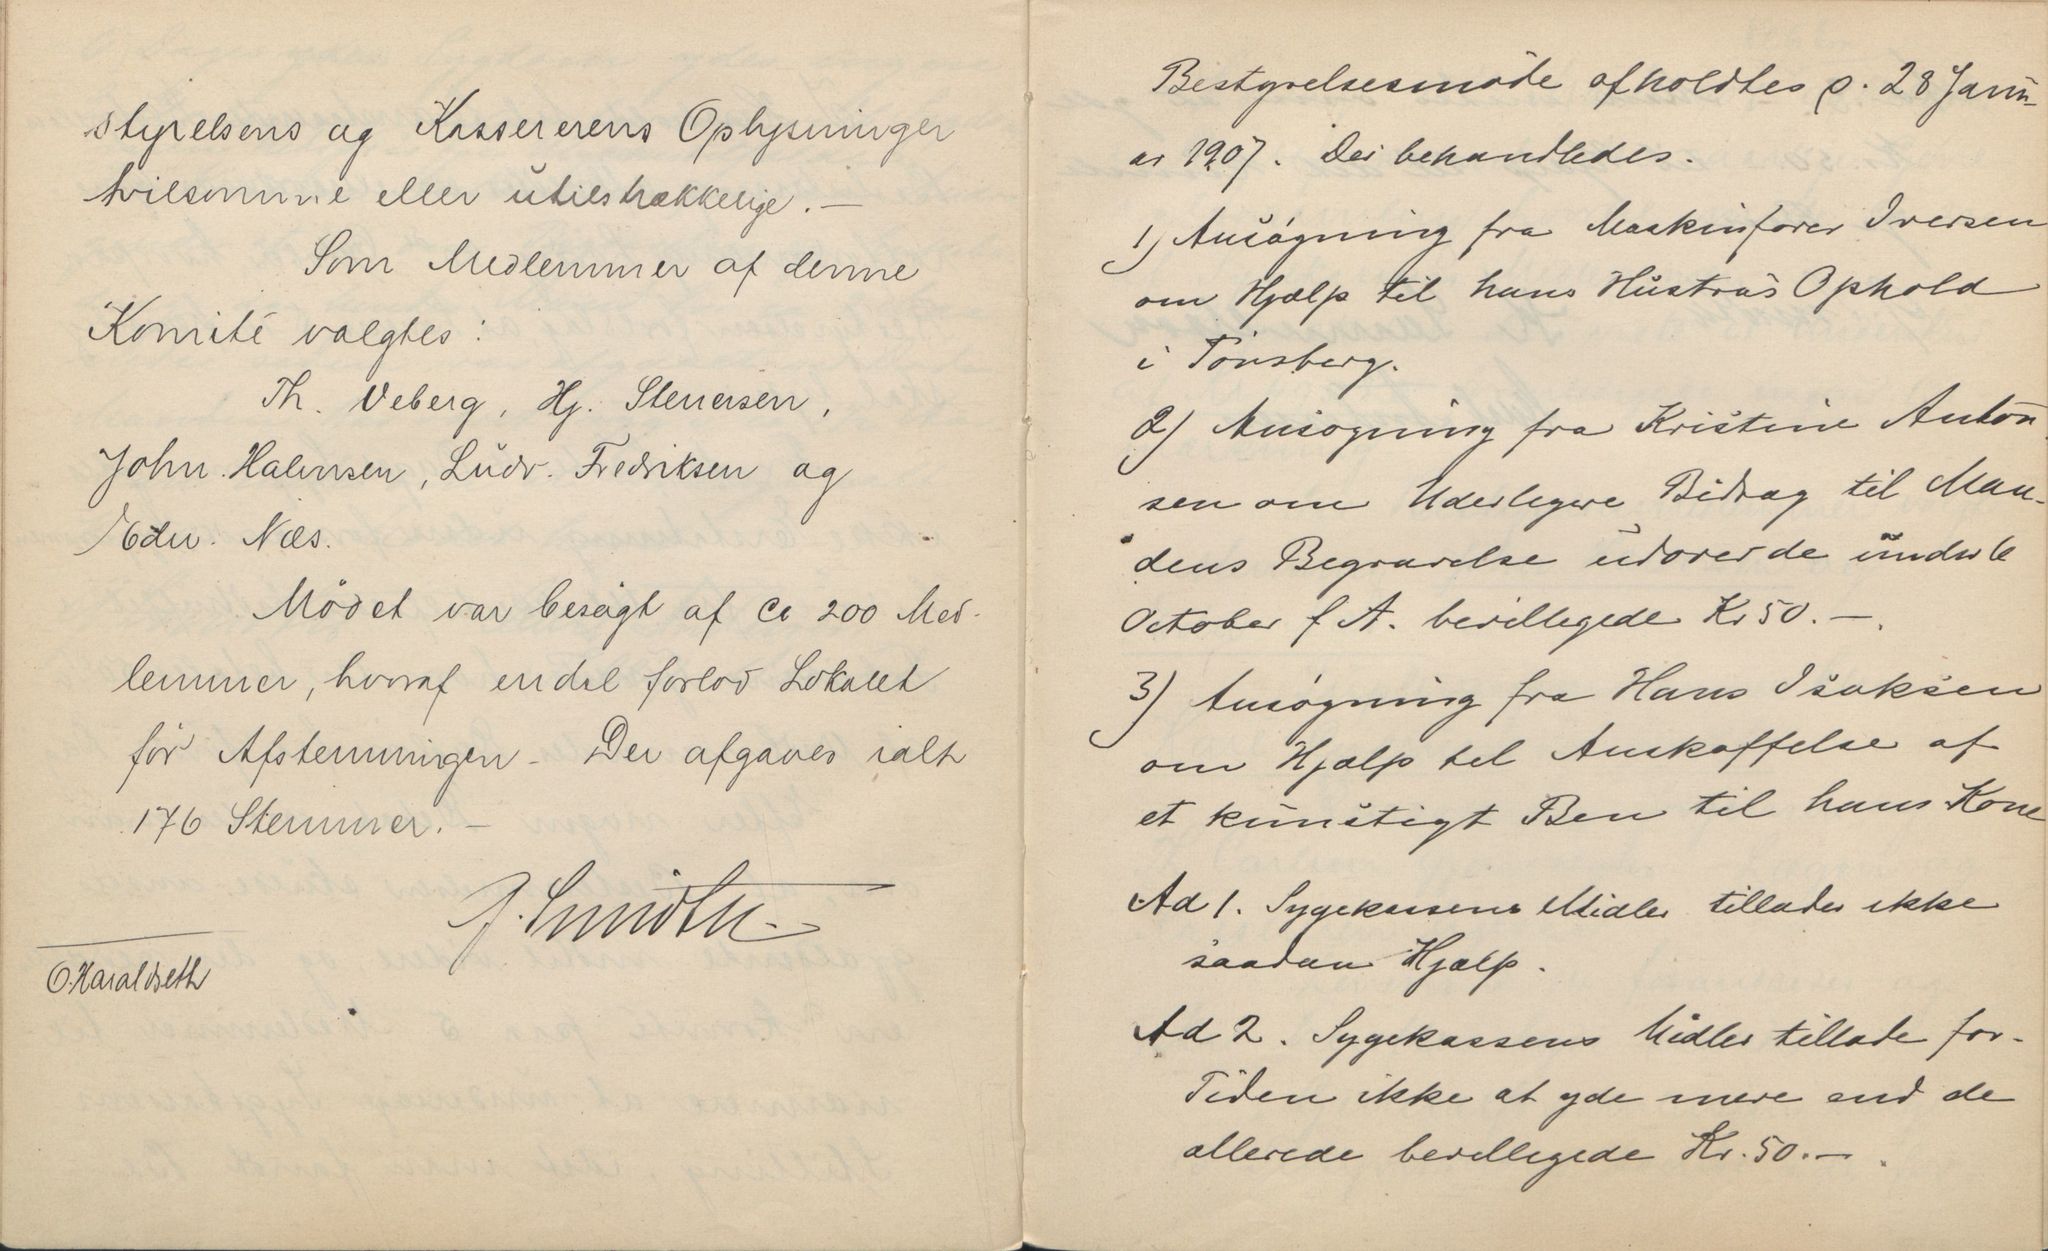 styrelsens og Kassererens Oplysninger
tvilsomme eller utilstrækkelige. —
Som Medlemmer af denne
Komité valgtes:
Th. Veberg, Hj. Stenersen,
John. Halvnsen, Ludv. Fredriksen og
Edv. Næs.
Mödet var besøgt af ca 200 Med-
lemmer, hvoraf endel forlod Lokalet
för Afstemningen - Der afgaves ialt
176 Stemmer. —
J. Smidth
O. Haraldseth
Bestyrelsesmøde afholdtes d. 28 Janu-
ar 1907. Der behandledes.
1) Ansøgning fra Maskinfører Iversen
om Hjælp til hans Hustrus Ophold
i Tønsberg.
2) Ansøgning fra Kristine Anton-
sen om Yderligere Bidrag til Man-
dens Begravelse udover de under
October f A. bevilligede Kr 50. —.
3) Ansøgning fra Hans Isaksen
om Hjælp til Anskaffelse af
et kunstigt Ben til hans Kone
Ad 1. Sygekassens Midler tillader ikke
saadan Hjælp.
Ad 2. Sygekassens Midler tillade for-
Tiden ikke at yde mere end de
allerede bevilligede Kr. 50. — .